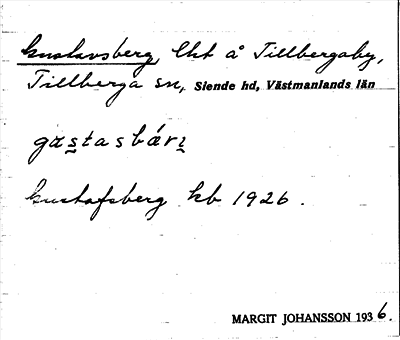 Gustavsberg, lht å Tillbergaby,
Tillberga sn, Siende hd, Västmanlands län
gastasbárɩ
Gustafsberg kb 1926.
MARGIT JOHANSSON 1936.